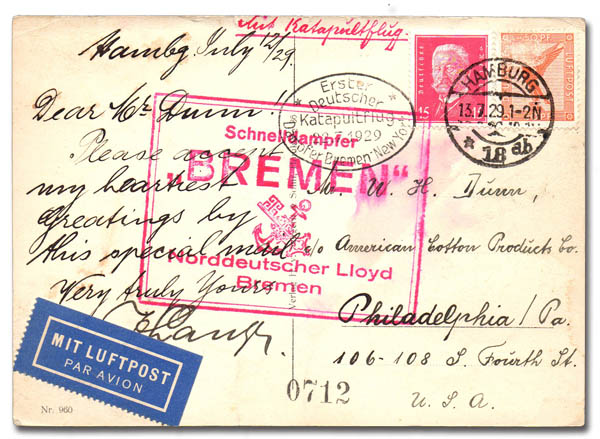 Mit Katapultflug
Hambg. July 12/29.
Dear Mr. Dunn!
Please accept
my heartiest
Greatings by
this special mail
Very truly Yours
Deutsches
15
50 PF
LUFTPOST
HAMBURG
13.7.29.1-2N
* 18 ab
Erster
Deutscher
Katapultflug
22.7.1929
Dampfer Bremen-New York
Schnelldampfer
„BREMEN"
Norddeutscher Lloyd
Bremen
Mr. W. H. Dunn,
c/o American Cotton Products Co.
Philadelphia/Pa.
106-108 S. Fourth St.
U.S.A.
MIT LUFTPOST
PAR AVION
0712
Nr. 960